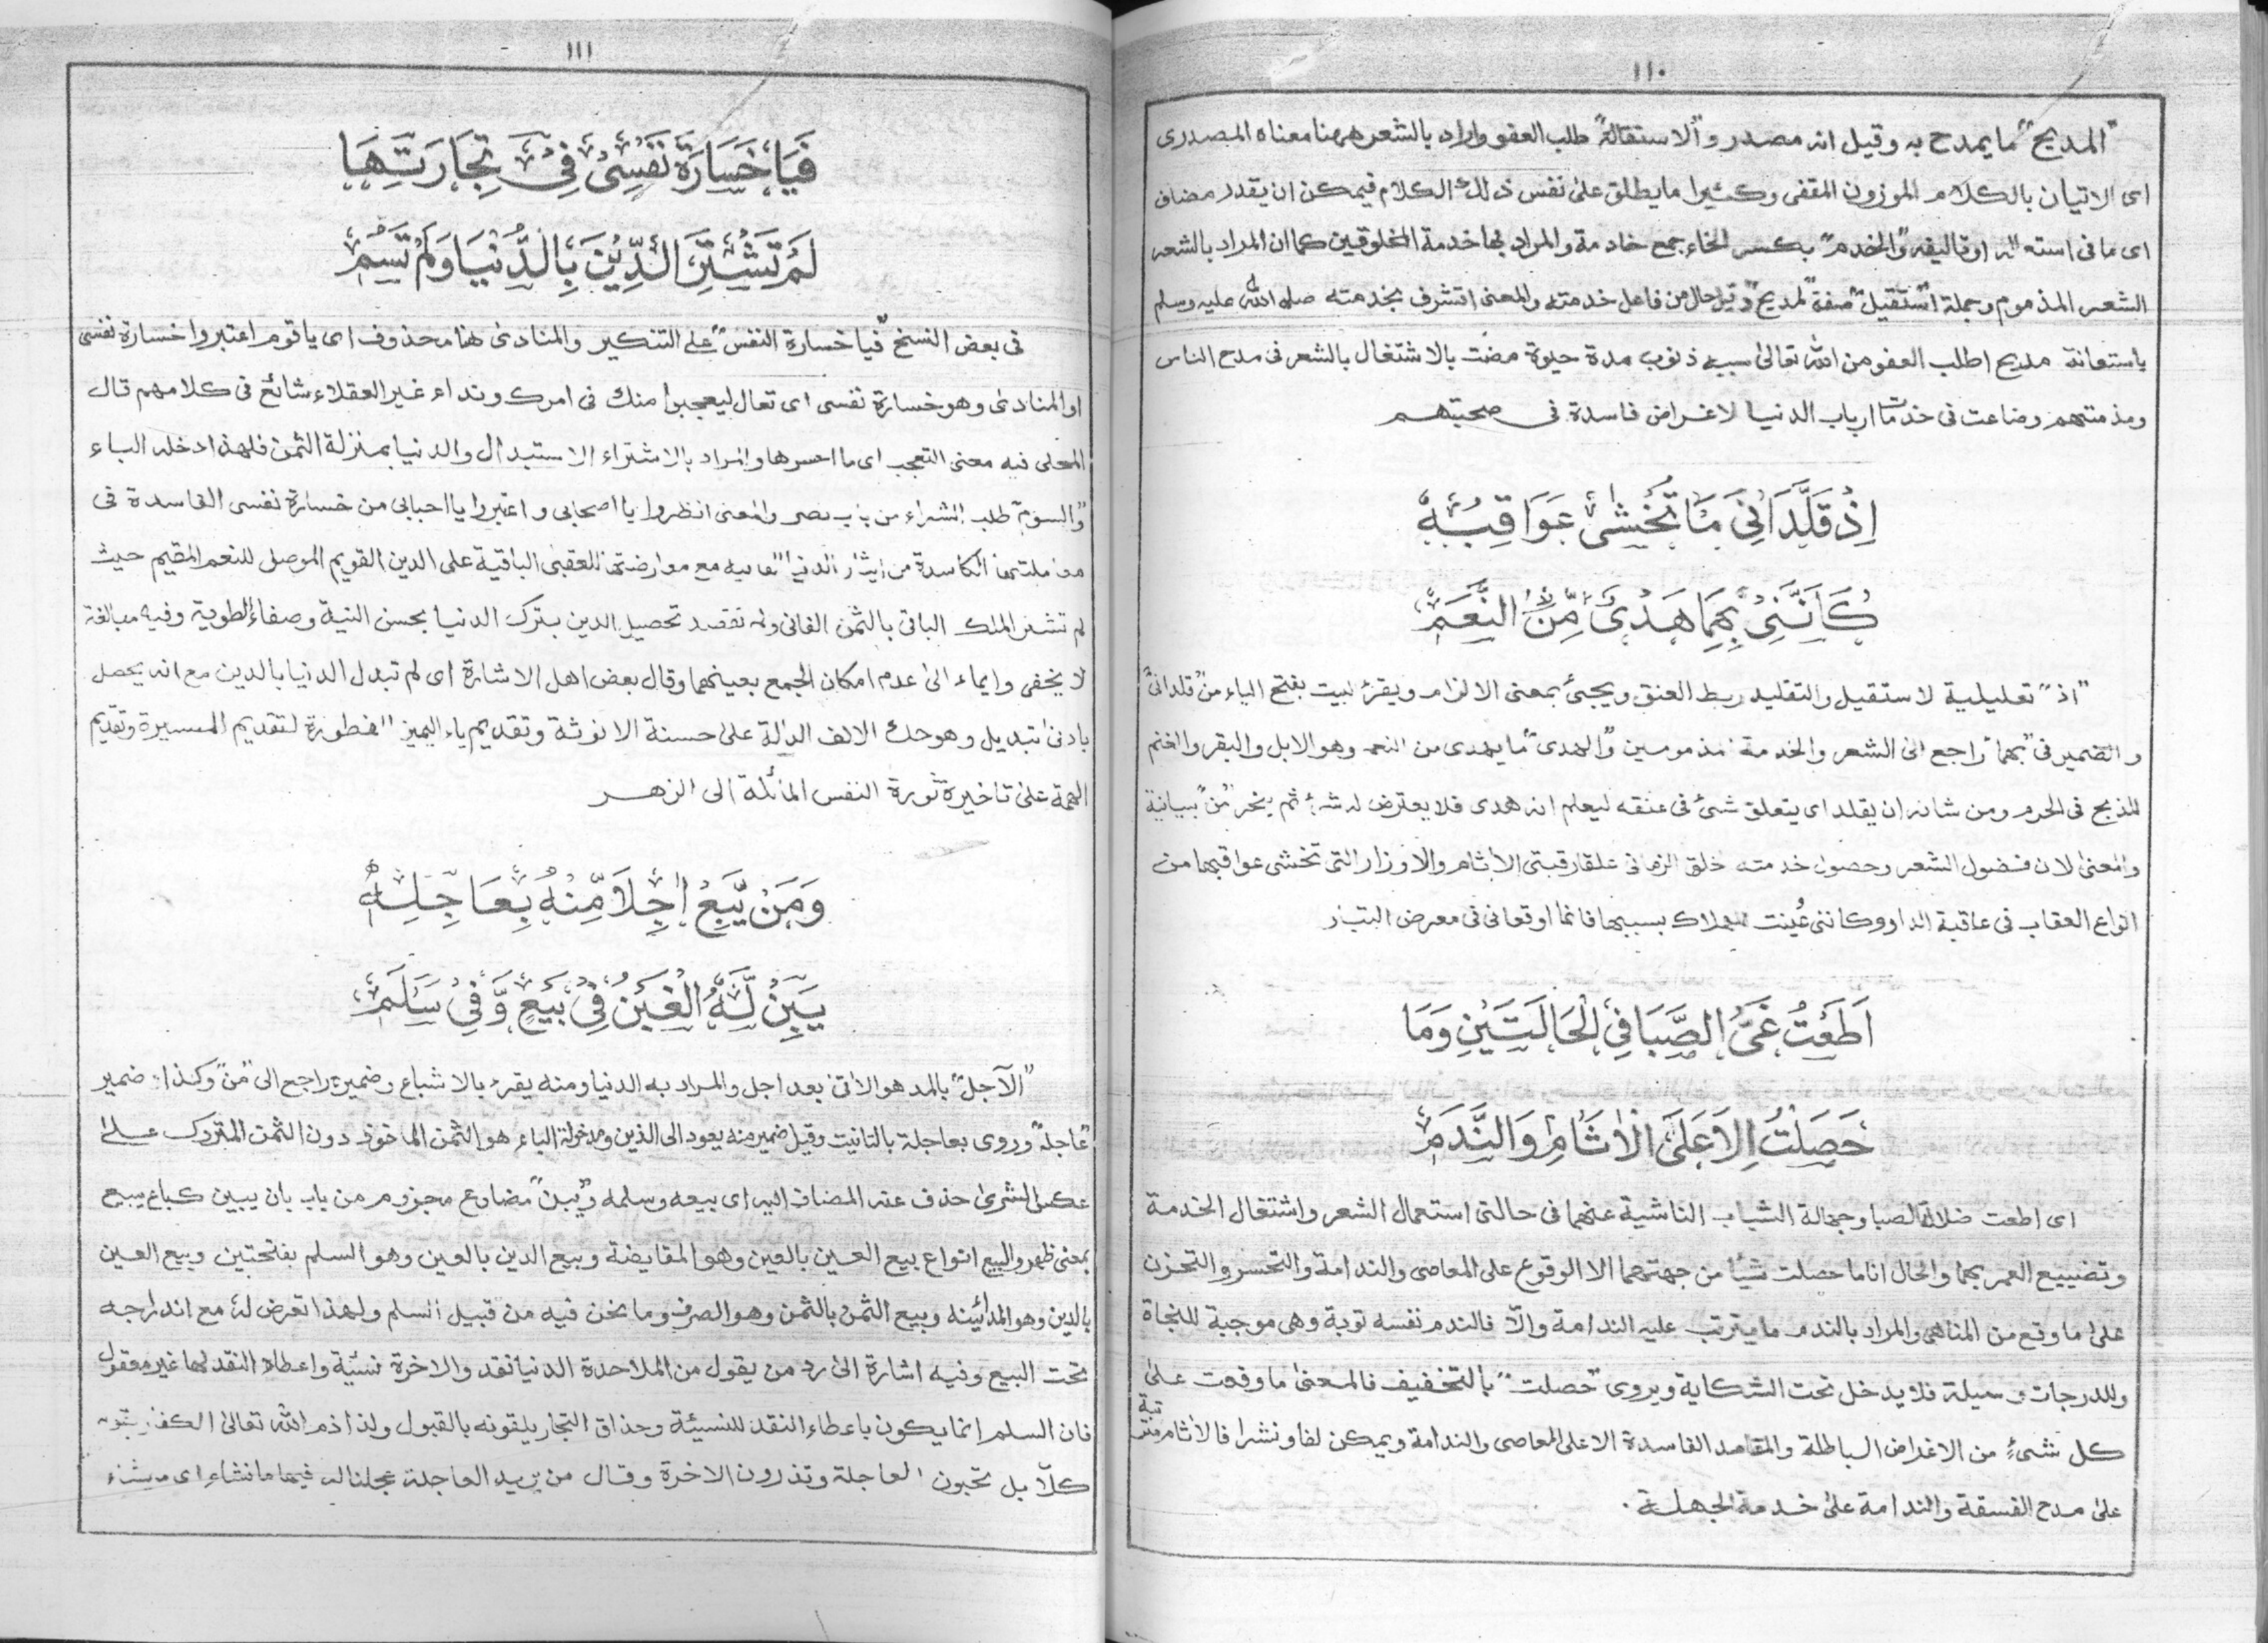 ١١٠
"المديح" ما يمدح به وقيل انه مصدر و"الاستقالة" طلب العفو واراد بالشعر ههنا معناه المصدرى
اى الاتيان بالكلام الموزون المقفى وكثيرا ما يطلق على نفس ذلك الكلام فيمكن ان يقدر مضاف
اى ما فى او تاليفه "والخدم" بكسر الخاء جمع خادمة والمراد بها خدمة المخلوقين كما ان المراد بالشعر
الشعر المذموم وجملة "استقيل" صفة "لمديح" وقيل حال من فاعل خدمته والمعنى اتشرف بخدمته صلى الله عليه وسلم
باستعانة مديح اطلب العفو من الله تعالى بسببه ذنوب مدة حيوة مضت بالاشتغال بالشعر فى مدح الناس
ومذمتهم وضاعت فى خدمات ارباب الدنيا لاغراض فاسدة فى صحبتهم
اِذْ قَلَّدَانِىَ مَا تُخْشٰى عَوَاقِبُهٗ
كَاَنَّنِىْ بِهِمَا هَدْىٌ مِّنَ النَّعَمِ
"اذ" تعليلية لاستقيل والتقليد ربط العنق ويجئ بمعنى الالزام ويقرء لبيت بفتح الياء من "قلدانى"
والضمير فى "بهما" راجع الى الشعر والخدمة مذمومين "والهدى" ما يهدى من النعم وهو الابل والبقر والغنم
للذبح فى الحرم ومن شانه ان يقلد اى يتعلق شئ فى عنقه ليعلم انه هدى فلا يعترض له شئ ثم ينحر "من" بيانية
والمعنى لان فضول الشعر وحصول خدمته خلق الزمانى علقا رقبتى الاثام والاوزار التى تخشى عواقبهما من
انواع العقاب فى عاقبة الدار وكاننى عُينت للهلاك بسببهما فانما اوقعانى فى معرض
اَطَعْتُ غَىَّ الصِّبَا فِى الْحَالَتَيْنِ وَمَا
حَصَلْتُ اِلَّا عَلَى الْاٰثَامِ وَالنَّدَمِ
اى اطعت ضلالة الصبا وجهالة الشباب الناشية عنهما فى حالتى استعمال الشعر واشتغال الخدمة
وتضييع العمر بهما والحال انا ما حصلت شيأ من جهتهما الا الوقوع على المعاصى والندامة والتحسر والتحزن
على ما وقع من المناهى والمراد بالندم ما يترتب عليه الندامة والّا فالندم نفسه توبة وهى موجبة للنجاة
وللدرجات وسيلة فلا يدخل تحت الشكاية ويروى "حصلت" بالتخفيف فالمعنى ما وقعت على
كل شئ من الاغراض الباطلة والمقاصد الفاسدة الا على المعاصى والندامة ويمكن لفا ونشرا فالاثام مترتبة
على مدح الفسقة والندامة على خدمة الجهلة.
١١١
فَيَا خَسَارَةَ نَفْسِىْ فِىْ تِجَارَتِهَا
لَمْ تَشْتَرِ الدِّيْنَ بِالدُّنْيَا وَلَمْ تَسُمِ
فى بعض النسخ "فيا خسارة النفس" على التنكير والمنادى هنا محذوف اى يا قوم اعتبروا خسارة نفسى
او المنادى وهو خسارة نفسى اى تعال ليعجبوا منك فى امرك ونداء غير العقلاء شائع فى كلامهم قال
المحلى فيه معنى التعجب اى ما اخسرها والمراد بالاشتراء الاستبدال والدنيا بمنزلة الثمن فلهذا دخله الباء
"والسوم" طلب الشراء من باب نصر والمعنى انظروا يا اصحابى واعتبروا يا احبابى من خسارة نفسى الفاسدة فى
معاملتها الكاسدة من ايثار الدنيا الفانية مع معارضتها للعقبى الباقية على الدين القويم الموصل للنعم المقيم حيث
لم تشتر الملك الباقى بالثمن الفانى ولم تقصد تحصيل الدين بترك الدنيا بحسن النية وصفاء الطوية وفيه مبالغة
لا يخفى وايماء الى عدم امكان الجمع بعينهما وقال بعض اهل الاشارة اى لم تبدل الدنيا بالدين مع انه يحصل
بادنى تبديل وهو حذف الالف الدالة على حسنة الانوثة وتقديم ياء لتقديم وتقديم
الهمة على تاخيرة ثورة النفس المائلة الى الزهر
وَمَنْ يَّبِعْ اٰجِلًا مِّنْهُ بِعَاجِلِهٖ
يَبِنْ لَّهُ الْغَبْنُ فِىْ بَيْعٍ وَّفِىْ سَلَمِ
"الآجل" بالمد هو الاتى بعد اجل والمراد به الدنيا ومنه يقرء بالاشباع وضميره راجع الى "من" وكذا ضمير
"عاجله" وروى بعاجلة بالتانيث وقيل ضمير منه يعود الى الدين ومدخولة الباء هو الثمن الماخوذ دون الثمن المتروك على
عكس الشرى حذف عنه المضاف اليه اى بيعه وسلمه و"يبن" مضارع مجزوم من باب بان يبين كباع يبيع
بمعنى ظهر والبيع انواع بيع العين بالعين وهو المقايضة وبيع الدين بالعين وهو السلم بفتحتين وبيع العين
بالدين وهو المدائينه وبيع الثمن بالثمن وهو الصرف وما نحن فيه من قبيل السلم ولهذا تعرض له مع اندراجه
تحت البيع وفيه اشارة الى رد من يقول من الملاحدة الدنيا نقد والاخرة نسئية واعطاء النقد لها غير معقول
فان السلم انما يكون باعطاء النقد للنسيئة وحذاق التجار يلقونه بالقبول ولذا ذم الله تعالى الكفار بقوله
كلّا بل تحبون العاجلة وتذرون الاخرة وقال من يريد العاجلة عجلنا له فيها ما نشاء اى